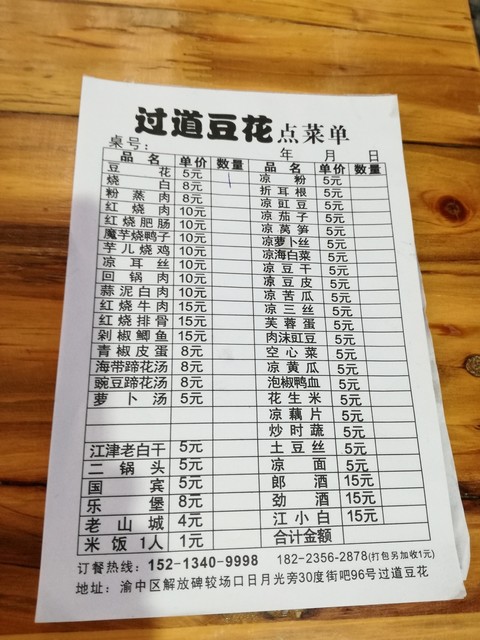 过道豆花点菜单
桌号： 年 月 日
品名 单价 数量 品名 单价 数量
豆花 5元 凉粉 5元
烧白 8元 折耳根 5元
粉蒸肉 8元 凉豇豆 5元
红烧肉 10元 凉茄子 5元
红烧肥肠 10元 凉莴笋 5元
魔芋烧鸭子 10元 凉萝卜丝 5元
芋儿烧鸡 10元 凉海白菜 5元
凉耳丝 10元 凉豆干 5元
回锅肉 10元 凉豆皮 5元
蒜泥白肉 10元 凉苦瓜 5元
红烧牛肉 15元 凉三丝 5元
红烧排骨 15元 芙蓉蛋 5元
剁椒鲫鱼 15元 肉沫豇豆 5元
青椒皮蛋 8元 空心菜 5元
海带蹄花汤 8元 凉黄瓜 5元
豌豆蹄花汤 8元 泡椒鸭血 5元
萝卜汤 5元 花生米 5元
凉藕片 5元
炒时蔬 5元
江津老白干 5元 土豆丝 5元
二锅头 5元 凉面 5元
国宾 5元 郎酒 15元
乐堡 8元 劲酒 15元
老山城 4元 江小白 15元
米饭1人 1元 合计金额
订餐热线：152-1340-9998 182-2356-2878(打包另加收1元)
地址：渝中区解放碑较场口日月光旁30度街吧96号过道豆花